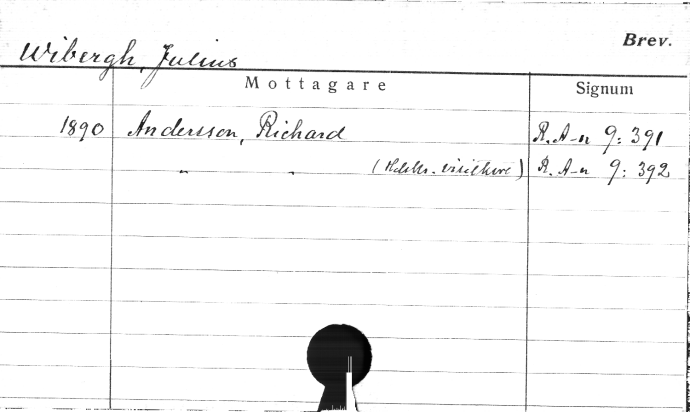 Brev.
Wibergh, Julius
Mottagare Signum
1890 Andersson, Richard R. A-n 9: 391
" " (Hälsn. visitkort) R. A-n 9: 392